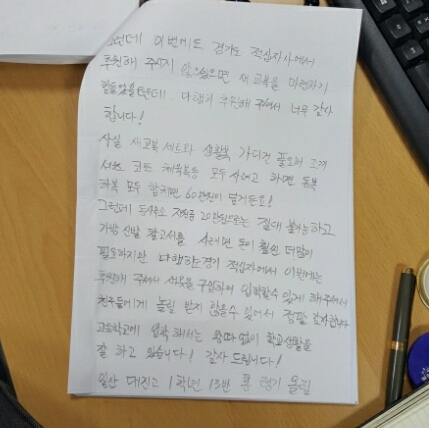 그런데 이번에도 경기도 적십자사에서
후원해 주시지 않으셨으면 새 교복을 마련하기
힘들었을텐데. 다행히 후원해 주셔서 너무 감사
합니다!
사실 새교복 세트와 생활복 가디건
코트 체육복등 모두 사려고 하면 동복
하복 모두 합치면 60만원이 넘거든요!
그런데 지원금 20만원으로는 절대 불가능하고
가방 신발 참고서를 사려면 돈이 훨씬 더많이
필요하지만 다행히도 경기 적십자사에서 이번에는
후원해 주셔서 새옷을 구입하여 입학할수 있게 해주셔서
친구들에게 놀림 받지 않을수 있어서 정말 감사합니다
고등학교에 입학 해서는 왕따 없이 학교생활을
잘 하고 있습니다! 감사 드립니다!
일산 대진고 1학년 13반 올림